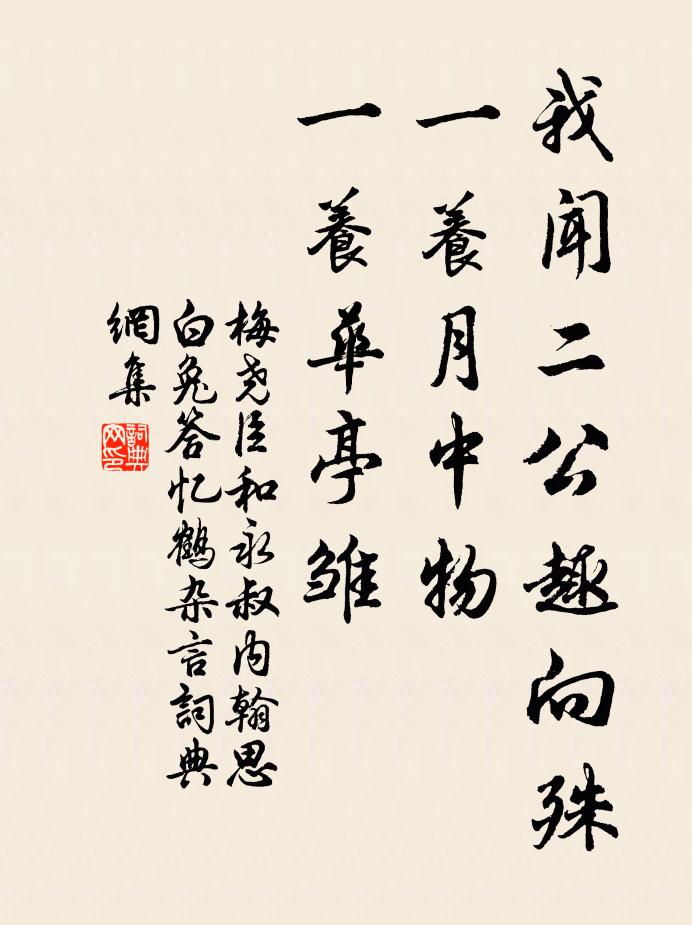 我聞二公趣向殊
一養月中物
一養華亭雏
梅尧臣和永叔内翰思
白兔答忆鶴杂言詞典
網集
詞典
网印